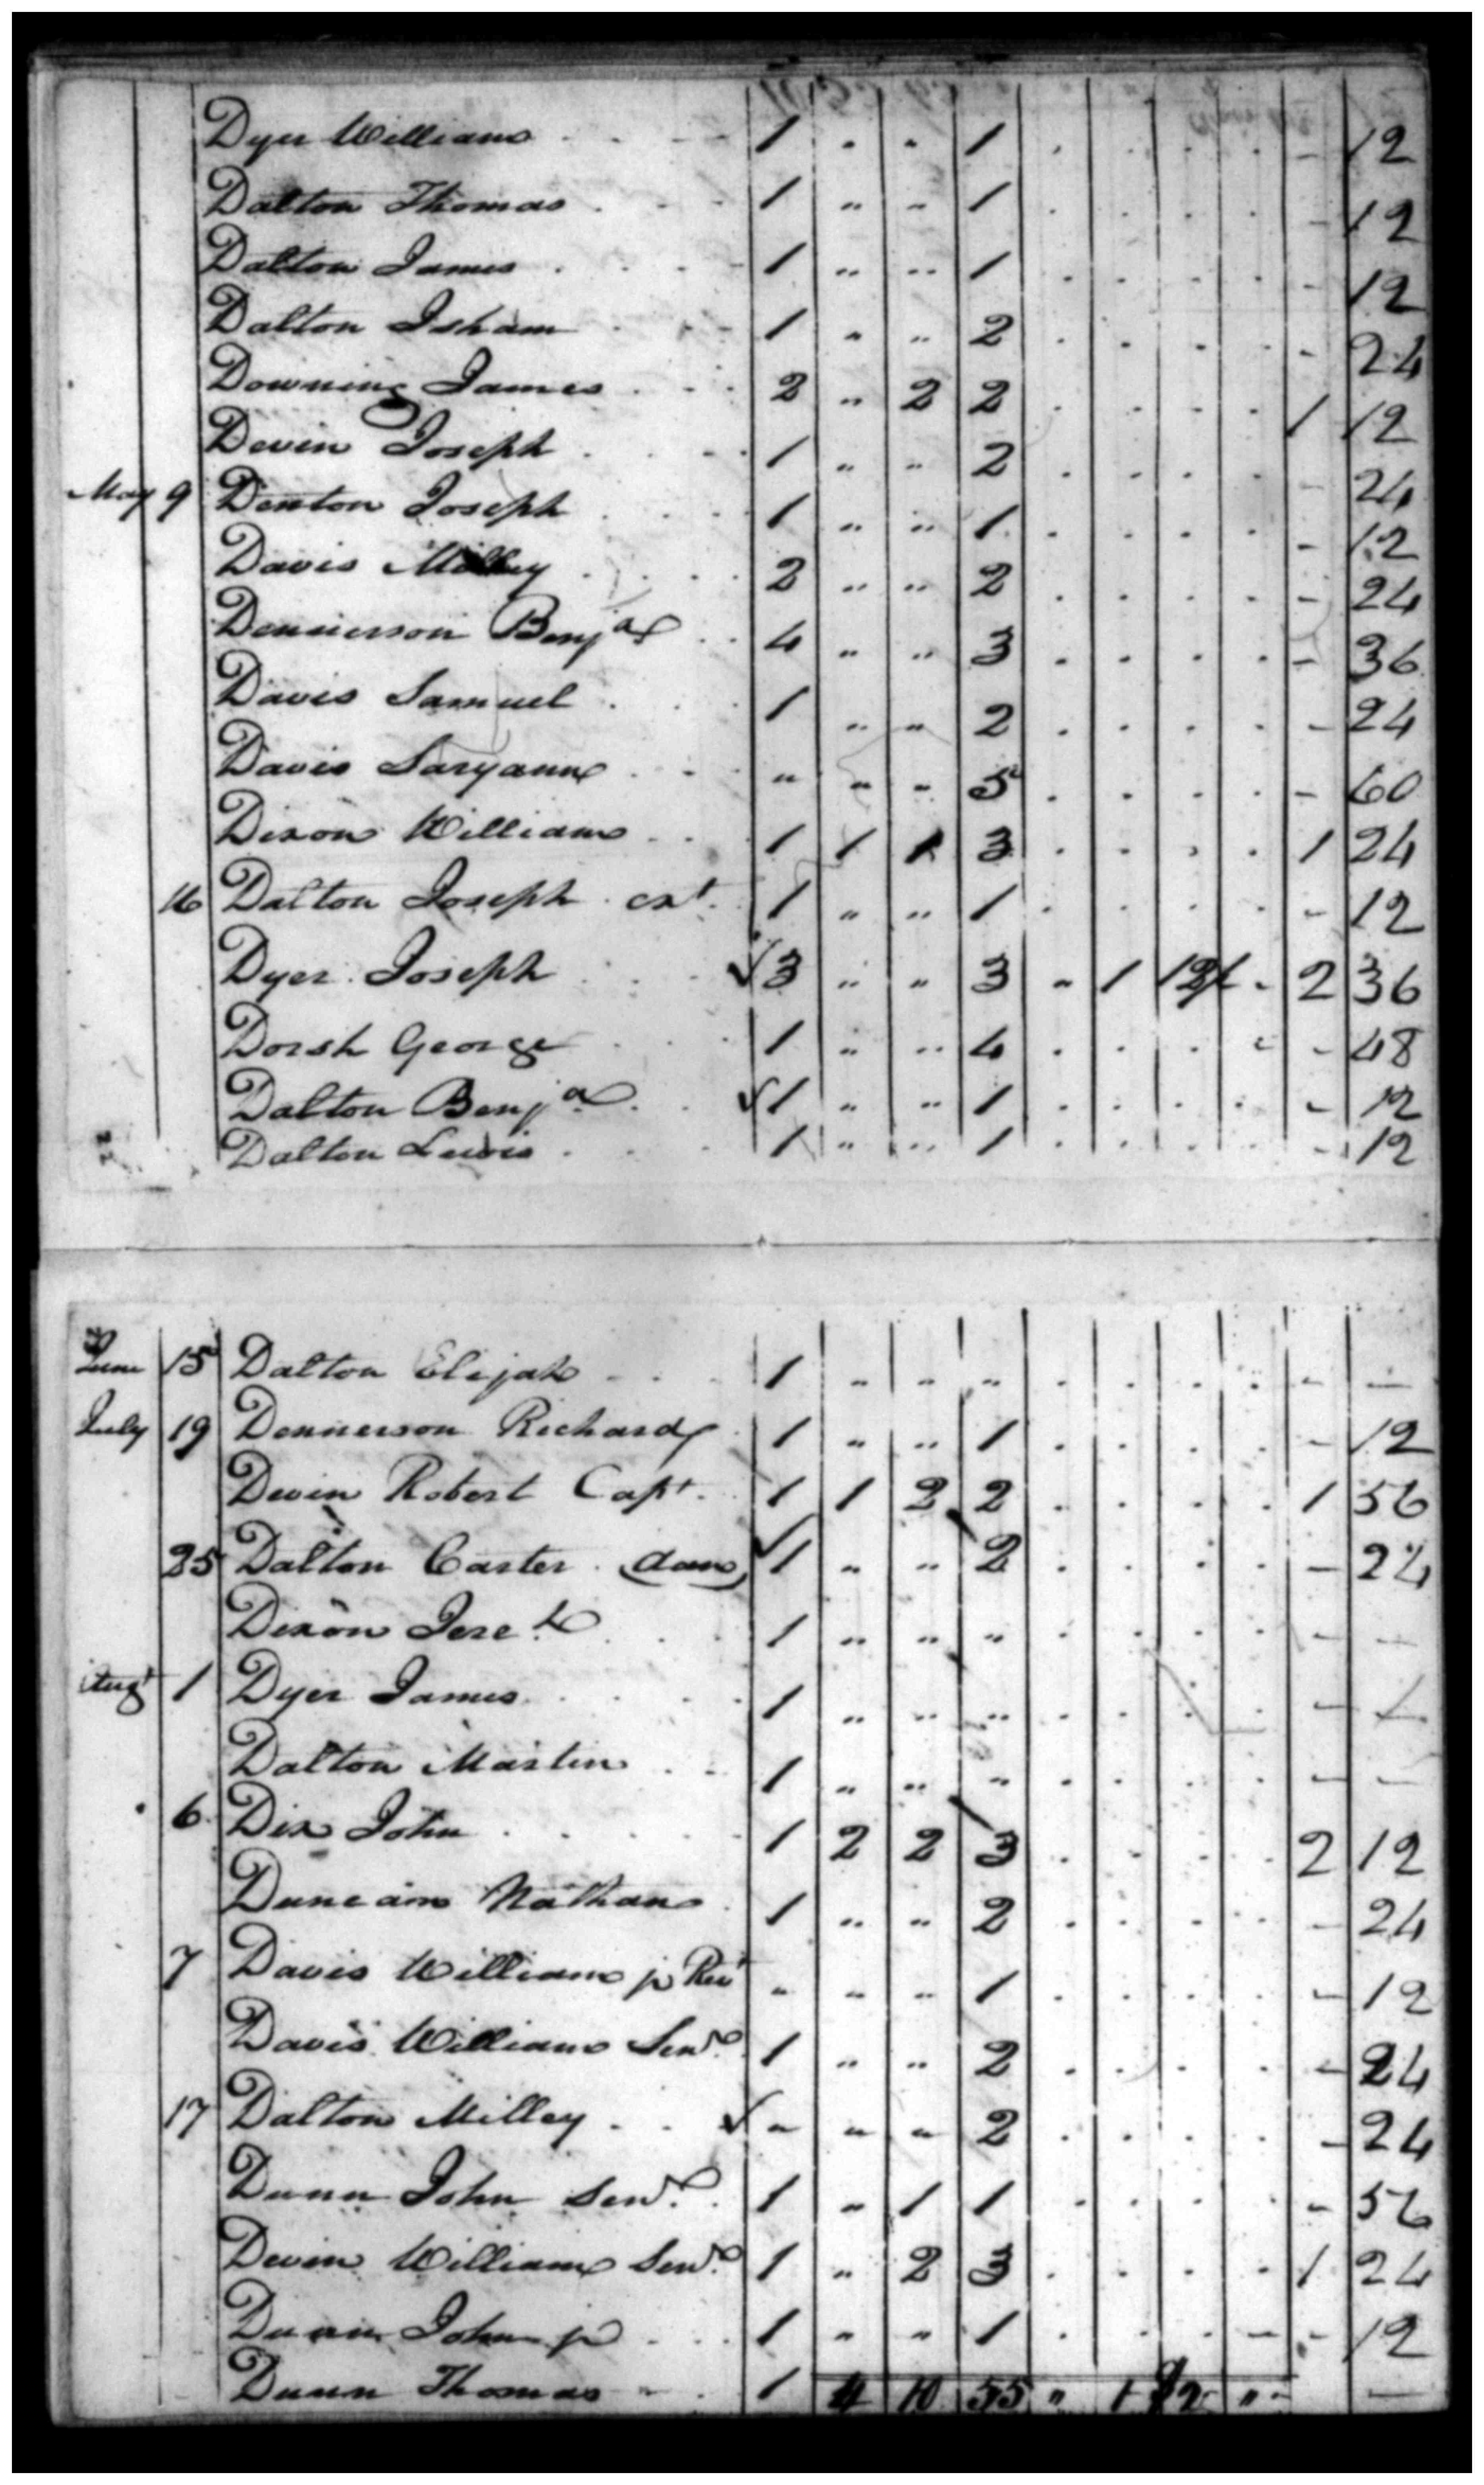 Dyer William 1 " " 1 - 12
Dalton Thomas 1 " " 1 - 12
Dalton James 1 " " 1 - 12
Dalton Isham 1 " " 2 - 24
Downing James 2 " 2 2 1 12
Devin Joseph 1 " " 2 - 24
May 9 Denton Joseph 1 " " 1 - 12
Davis Milley 2 " " 2 - 24
Dennerson Benja 4 " " 3 - 36
Davis Samuel 1 " " 2 - 24
Davis Saryann " " " 5 - 60
Dixon William 1 1 1 3 1 24
16 Dalton Joseph cst. 1 " " 1 - 12
Dyer Joseph ✓ 3 " " 3 " 1 12 - 2 36
Dorsh George 1 " " 4 - 48
Dalton Benja ✓ 1 " " 1 - 12
Dalton Lewis 1 " " 1 - 12
June 15 Dalton Elijah 1 " " " - -
July 19 Dennerson Richard 1 " " 1 - 12
Devin Robert Capt. 1 1 2 2 1 56
25 Dalton Carter ✓ 1 " " 2 - 24
Dixon Jere h 1 " " " - -
Augt 1 Dyer James 1 " " " - -
Dalton Martin 1 " " " - -
6 Dix John 1 2 2 3 2 12
Duncan Nathan 1 " " 2 - 24
7 Davis William jr " " " 1 - 12
Davis William Senr 1 " " 2 - 24
17 Dalton Milley ✓ " " " 2 - 24
Dunn John Senr 1 " 1 1 - 56
Devin William Senr 1 " 2 3 1 24
Dunn John jr 1 " " 1 - 12
Dunn Thomas 1 4 10 55 " 1 12 " -